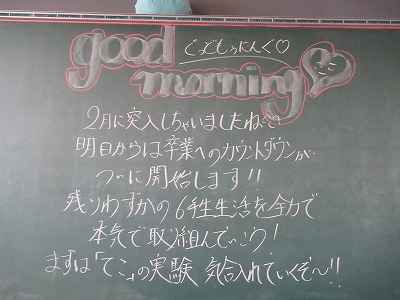 good
ぐっどもぅにんぐ♡
morning
2月に突入しちゃいましたね
明日からは卒業へのカウントダウンが
ついに開始します!!
残りわずかの6年生生活を全力で
本気で取り組んでいこう!
まずは「てこ」の実験 気合入れていくぞ〜!!